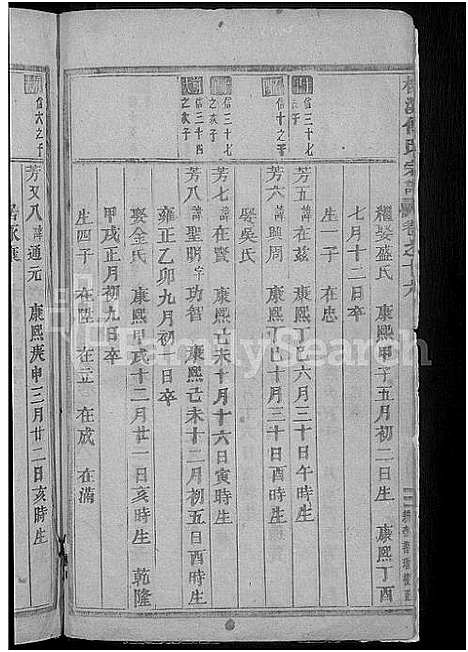 繼娶盛氏 康熙甲子五月初二日生 康熙丁酉
七月十二日卒
生一子 在忠
信三十七
芳五 諱在茲 康熙丁巳六月三十日午時生
信十之子
芳六 諱 康熙丁巳十月三十日酉時生
娶吳氏
信三十七
之次子
芳七 諱在賢 康熙己未十月十六日寅時生
信三十四
之次子
芳八 諱聖明 字功智 康熙己未十二月初五日酉時生
雍正乙卯九月初 日卒
娶金氏 康熙甲戌十二月廿一日亥時生 乾隆
甲戌正月初九日卒
生四子 在陞 在立 在成 在滿
信六之子
芳又八 諱通元 康熙庚申三月廿二日亥時生
FamilySearch